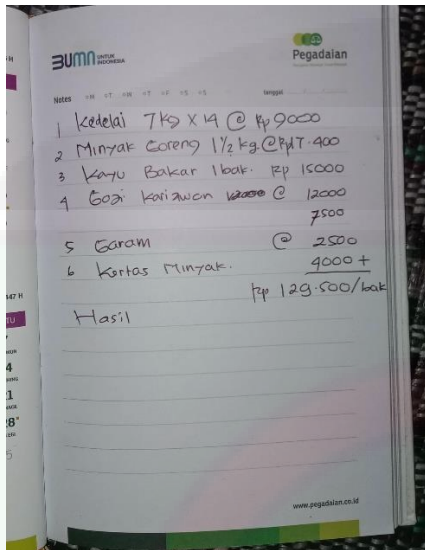 BUMN UNTUK INDONESIA
Pegadaian
Notes
tanggal
1 Kedelai 7 kg X 14 @ Rp 9000
2 Minyak Goreng 1 1/2 kg. @ Rp 17.400
3 Kayu Bakar 1 bak. Rp 15000
4 Gaji Kariawan @ 12000
7500
5 Garam @ 2500
6 Kertas Minyak. 4000 +
Rp 129.500/bak
Hasil
www.pegadaian.co.id